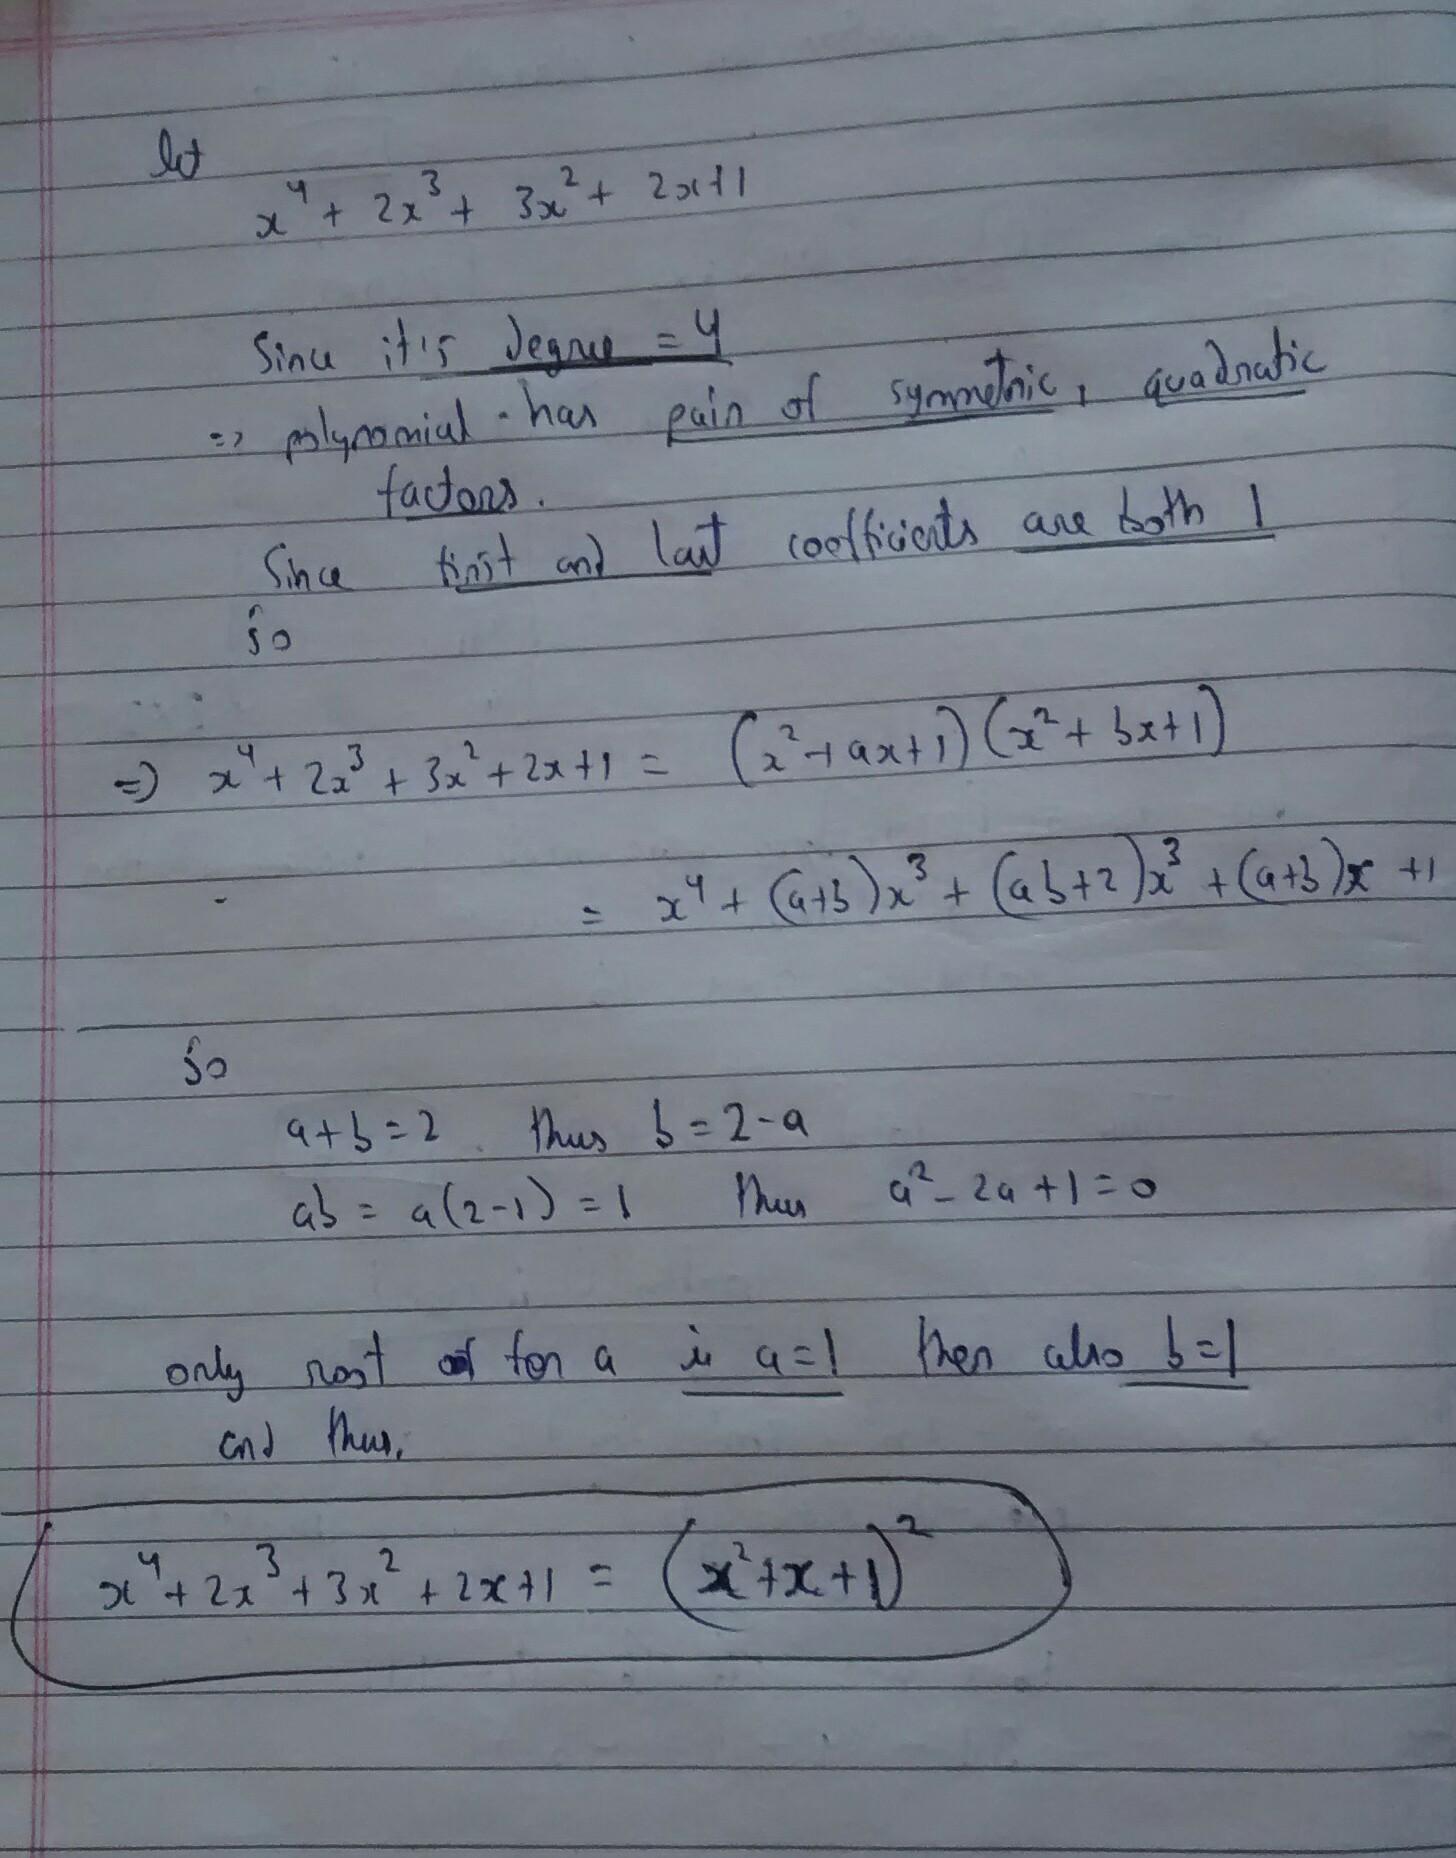 let
x⁴ + 2x³ + 3x² + 2x+1
Since it's Degree = 4
=> polynomial - has pair of symmetric, quadratic
factors.
Since first and last coefficients are both 1
So
=) x⁴ + 2x³ + 3x² + 2x + 1 = (x² + ax + 1)(x² + bx + 1)
= x⁴ + (a+b)x³ + (ab+2)x³ + (a+b)x + 1
So
a+b = 2 thus b = 2-a
ab = a(2-1) = 1 thus a² - 2a + 1 = 0
only root for a is a=1 then also b=1
and thus,
x⁴ + 2x³ + 3x² + 2x + 1 = (x² + x + 1)²